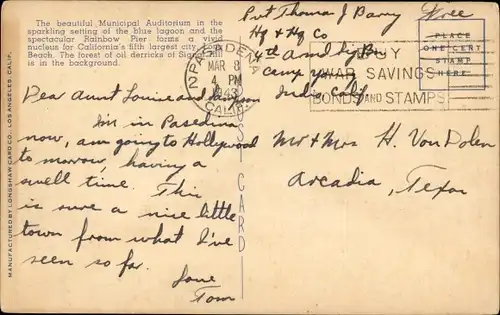 The beautiful Municipal Auditorium in the
sparkling setting of the blue lagoon and the
spectacular Rainbow Pier forms a vivid
nucleus for California's fifth largest city, Long
Beach. The forest of oil derricks of Signal Hill
is in the background.
Dear Aunt Louise and
Im in Pasedina
now, am going to Hollywood
to morrow, having a
swell time. This
is sure a nice little
town from what I've
seen so far.
Love
Tom
MANUFACTURED BY LONGSHAW CARD CO., LOS ANGELES, CALIF.
POST CARD
PASADENA
MAR 8
4 PM
1943
CALIF.
BUY
WAR SAVINGS
BONDS AND STAMPS
PLACE
ONE CENT
STAMP
HERE
Pvt Thomas J Barry Free
Hq & Hq Co
4th Armd
Camp
Indio Calif
Mr & Mrs H. Von Dolen
Arcadia, Texas